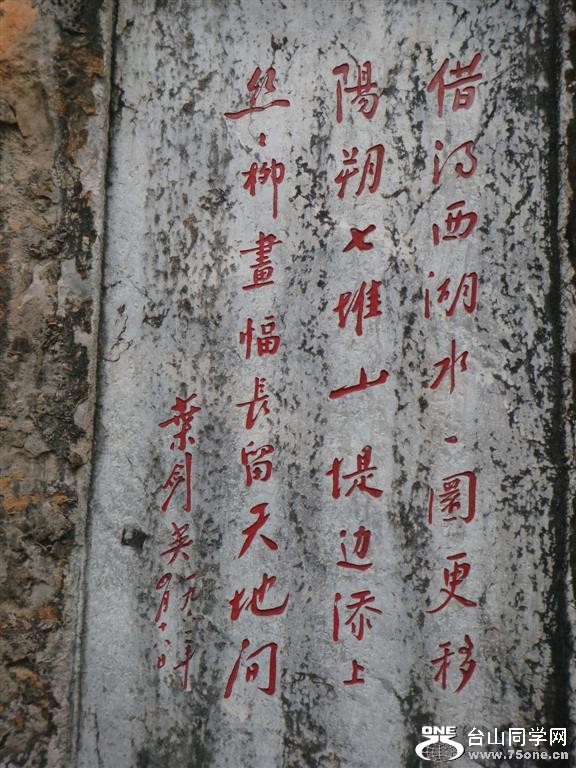 借得西湖水一圜更移
陽朔七堆山堤边添上
丝〻柳畫幅長留天地间
葉剑英一九六一年
月十
ONE 台山同学网
www.75one.cn